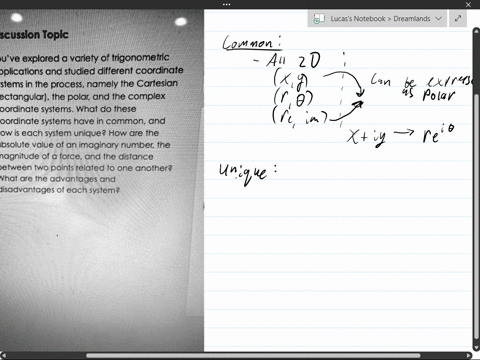 Lucas's Notebook > Dreamlands
scussion Topic
ou've explored a variety of trigonometric
pplications and studied different coordinate
ystems in the process, namely the Cartesian
rectangular), the polar, and the complex
oordinate systems. What do these
oordinate systems have in common, and
ow is each system unique? How are the
bsolute value of an imaginary number, the
magnitude of a force, and the distance
between two points related to one another?
What are the advantages and
disadvantages of each system?
Common:
- All 2D
(x, y)
(r, θ)
(re, im)
Can be
as Polar
x + iy → re^{iθ}
Unique: